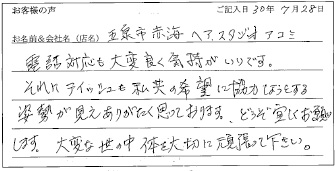 お客様の声
ご記入日 30年 7月 28日
お名前&会社名（店名） 五泉市赤海 ヘアスタジオアコミ
電話対応も大変良く気持がいいです。
それにティッシュも私共の希望に協力しようとする
姿勢が見えありがたく思っております。どうぞ宜しくお願い
します。大変な世の中 体を大切に頑張って下さい。